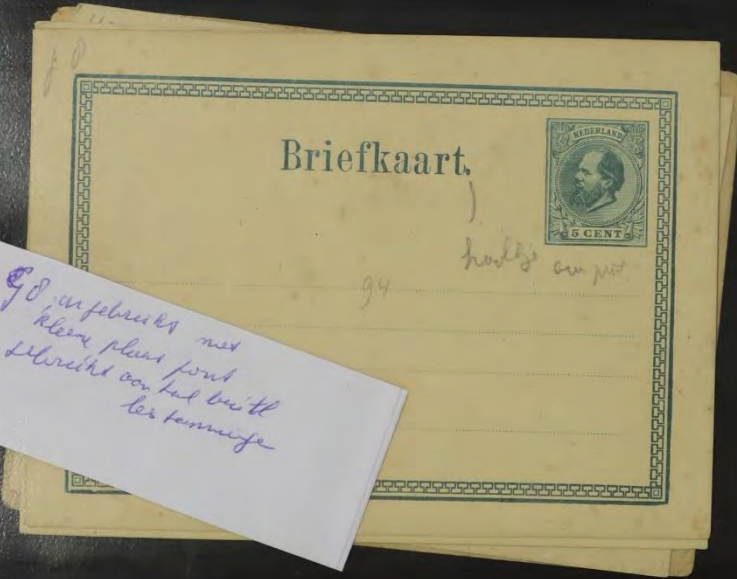 g 8
Briefkaart.
NEDERLAND
5 CENT
)
haaltje om punt
94
G8 ongebruikt met
kleine plaat fout
gebruikt aantal buitl
bestemminge